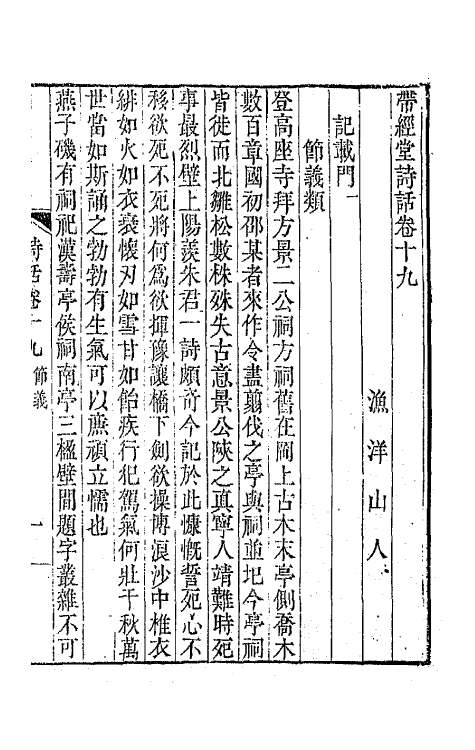 帶經堂詩話卷十九
漁洋山人
記載門一
節義類
登高座寺拜方景二公祠方祠舊在岡上古木末亭側喬木
數百章國初邵某者來作令盡翦伐之亭與祠並圯今亭祠
皆徙而北雛松數株殊失古意景公陝之眞寧人靖難時死
事最烈壁上陽羨朱君一詩頗奇今記於此慷慨誓死心不
移欲死不死將何爲欲揮豫讓橋下劍欲操博浪沙中椎衣
緋如火如衣衰懷刃如雪甘如飴疾行犯駕氣何壯千秋萬
世當如斯誦之勃勃有生氣可以廉頑立懦也
燕子磯有祠祀漢壽亭侯祠南亭三楹壁間題字叢雜不可
詩話卷十九 節義 一